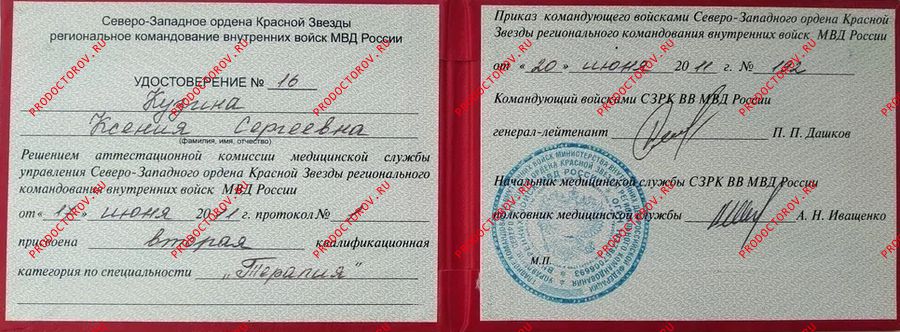 Северо-Западное ордена Красной Звезды
региональное командование внутренних войск МВД России
УДОСТОВЕРЕНИЕ № 16
Кузина
Ксения Сергеевна
(фамилия, имя, отчество)
Решением аттестационной комиссии медицинской службы
управления Северо-Западного ордена Красной Звезды регионального
командования внутренних войск МВД России
от« июня 2011 г. протокол №
присвоена вторая квалификационная
категория по специальности „Терапия"
Приказ командующего войсками Северо-Западного ордена Красной
Звезды регионального командования внутренних войск МВД России
от «20» июня 2011 г. № 192
Командующий войсками СЗРК ВВ МВД России
генерал-лейтенант П. П. Дашков
Начальник медицинской службы СЗРК ВВ МВД России
полковник медицинской службы А. Н. Иващенко
М.П.
PRODOCTOROV.RU